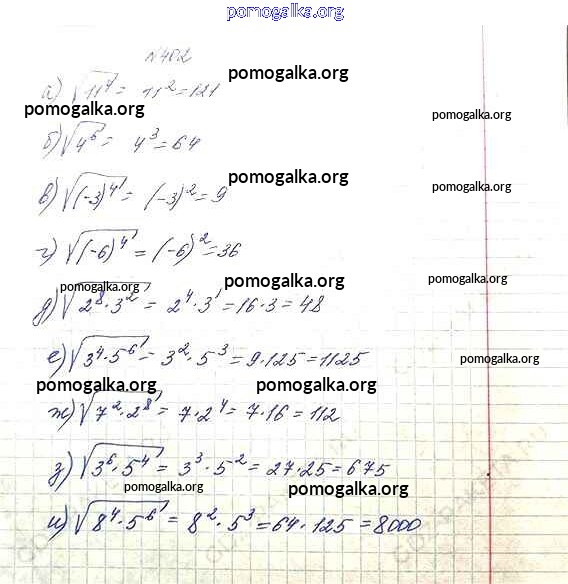 pomogalka.org
N402
pomogalka.org
а) √11⁴ = 11² = 121
pomogalka.org
pomogalka.org
б) √4⁶ = 4³ = 64
pomogalka.org
pomogalka.org
в) √(-3)⁴ = (-3)² = 9
г) √(-6)⁴ = (-6)² = 36
pomogalka.org
pomogalka.org
pomogalka.org
д) √2⁸·3² = 2⁴·3¹ = 16·3 = 48
е) √3⁴·5⁶ = 3²·5³ = 9·125 = 1125
pomogalka.org
pomogalka.org
pomogalka.org
ж) √7²·2⁸ = 7·2⁴ = 7·16 = 112
з) √3⁶·5⁴ = 3³·5² = 27·25 = 675
pomogalka.org
pomogalka.org
и) √8⁴·5⁶ = 8²·5³ = 64·125 = 8000